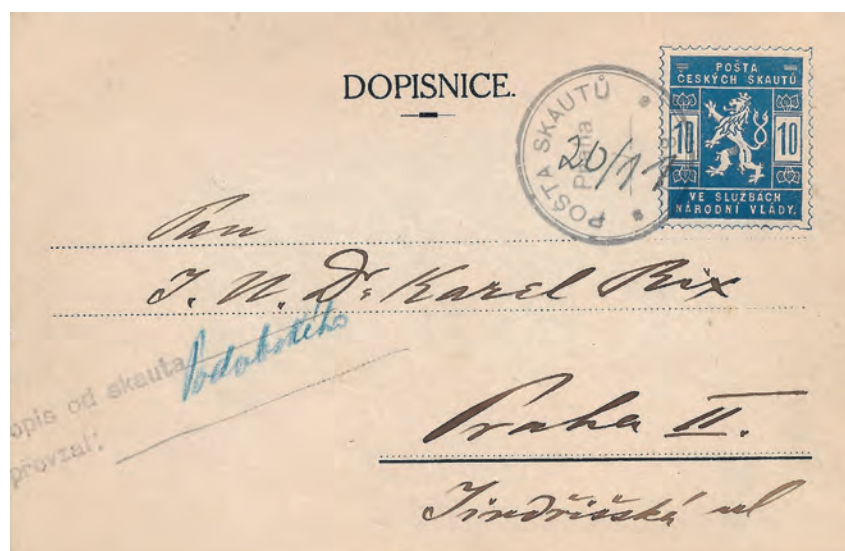 DOPISNICE.
POŠTA
ČESKÝCH SKAUTŮ
10 10
VE SLUŽBÁCH
NÁRODNÍ VLÁDY.
POŠTA SKAUTŮ
Praha
20/11
Pan
J. U. Dr. Karel Rix
opis od skauta
převzal:
Praha II.
Jindřišská ul